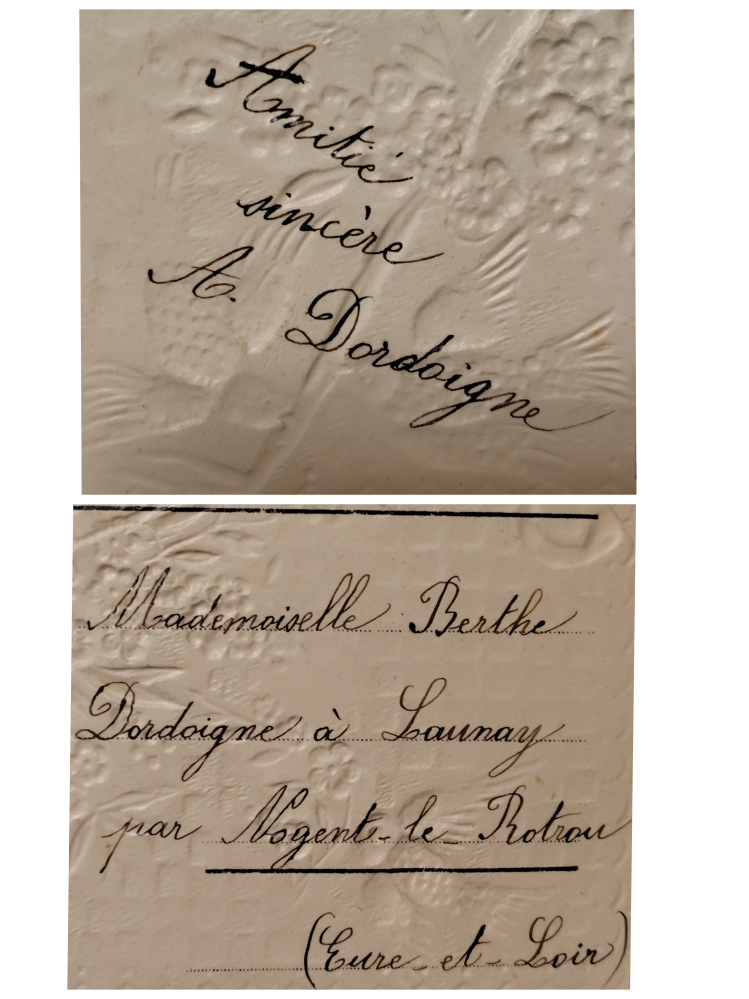 Amitié
sincère
A. Dordoigne
Mademoiselle Berthe
Dordoigne à Launay
par Nogent-le-Rotrou
(Eure-et-Loir)